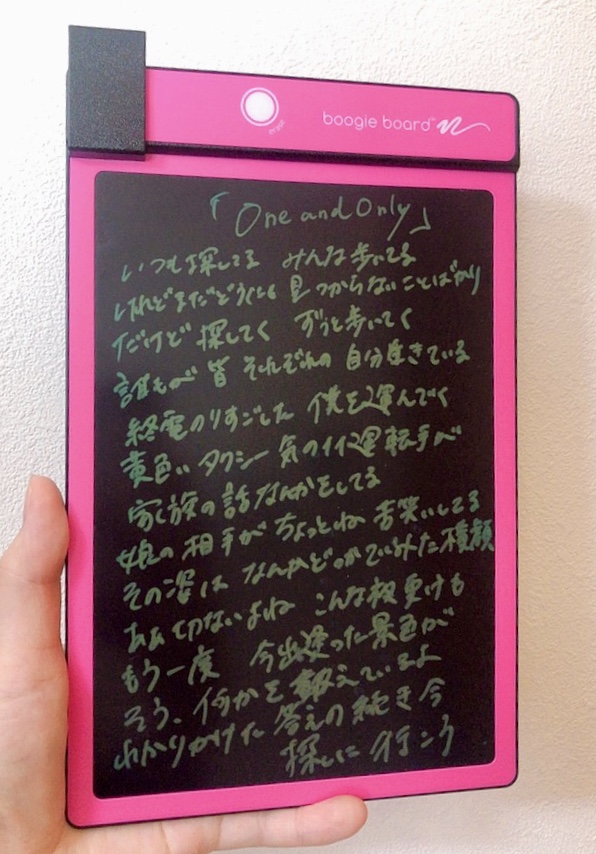 erase
boogie board™
「One and Only」
いつも探してる みんな歩いてる
けれどまだどうにも見つからないことばかり
だけど 探してく ずっと歩いてく
誰もが 皆 それぞれの 自分生きている
終電のりすごした 僕を運んでく
黄色い タクシー 気のイイ運転手が
家族の話なんかをしてる
娘の相手が ちょっとね 苦笑いしてる
その姿は なんかどっかでみた横顔
ああ 切ないよね こんな夜更けも
もう一度 今出逢った景色が
そう、何かを 教えているよ
わかりかけた 答えの続き 今
探しに 行こう